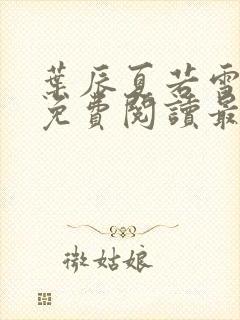 葉辰夏若雪
免費閱讀最
微姑娘